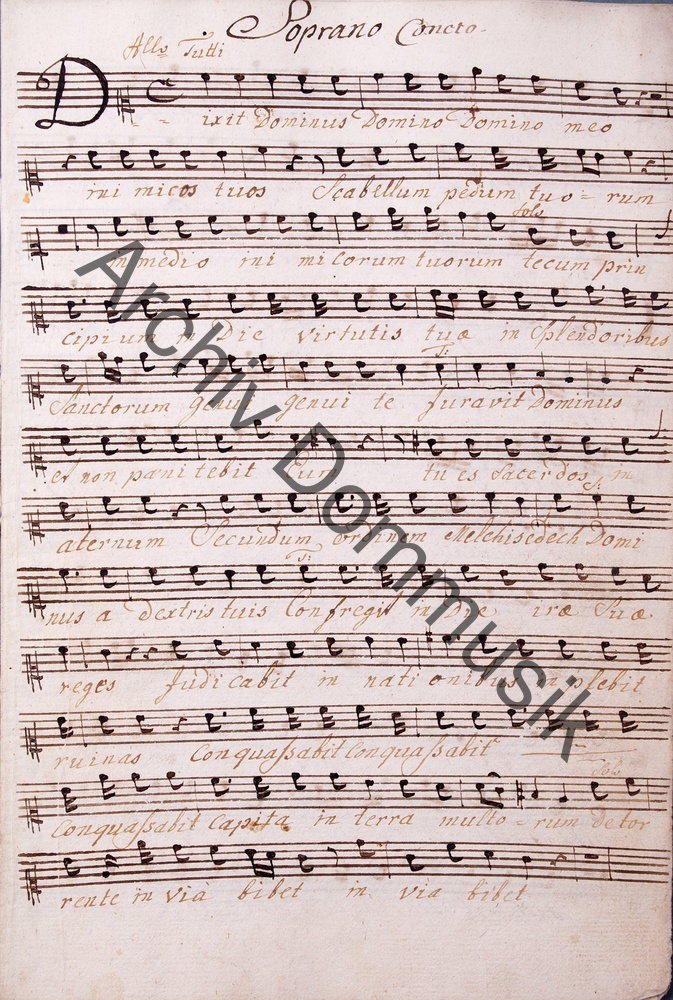 Soprano Concto.
Allo Tutti
Dixit Dominus Domino Domino meo
ini micos tuos Scabellum pedum tuo = rum
Solo
in medio ini micorum tuorum tecum prin
cipium in Die virtutis tuæ in Splendoribus
T:
Sanctorum genui genui te Juravit Dominus
et non pænitebit Eum tu es Sacerdos in
S:
æternum Secundum ordinem Melchisedech Domi
T:
nus a dextris tuis Confregit in die iræ Suæ
reges Judicabit in nationibus implebit
ruinas Conquassabit Conquassabit
Solo
Conquassabit Capita in terra multo = rum de tor
rente in via bibet in via bibet
Archiv Dommusik